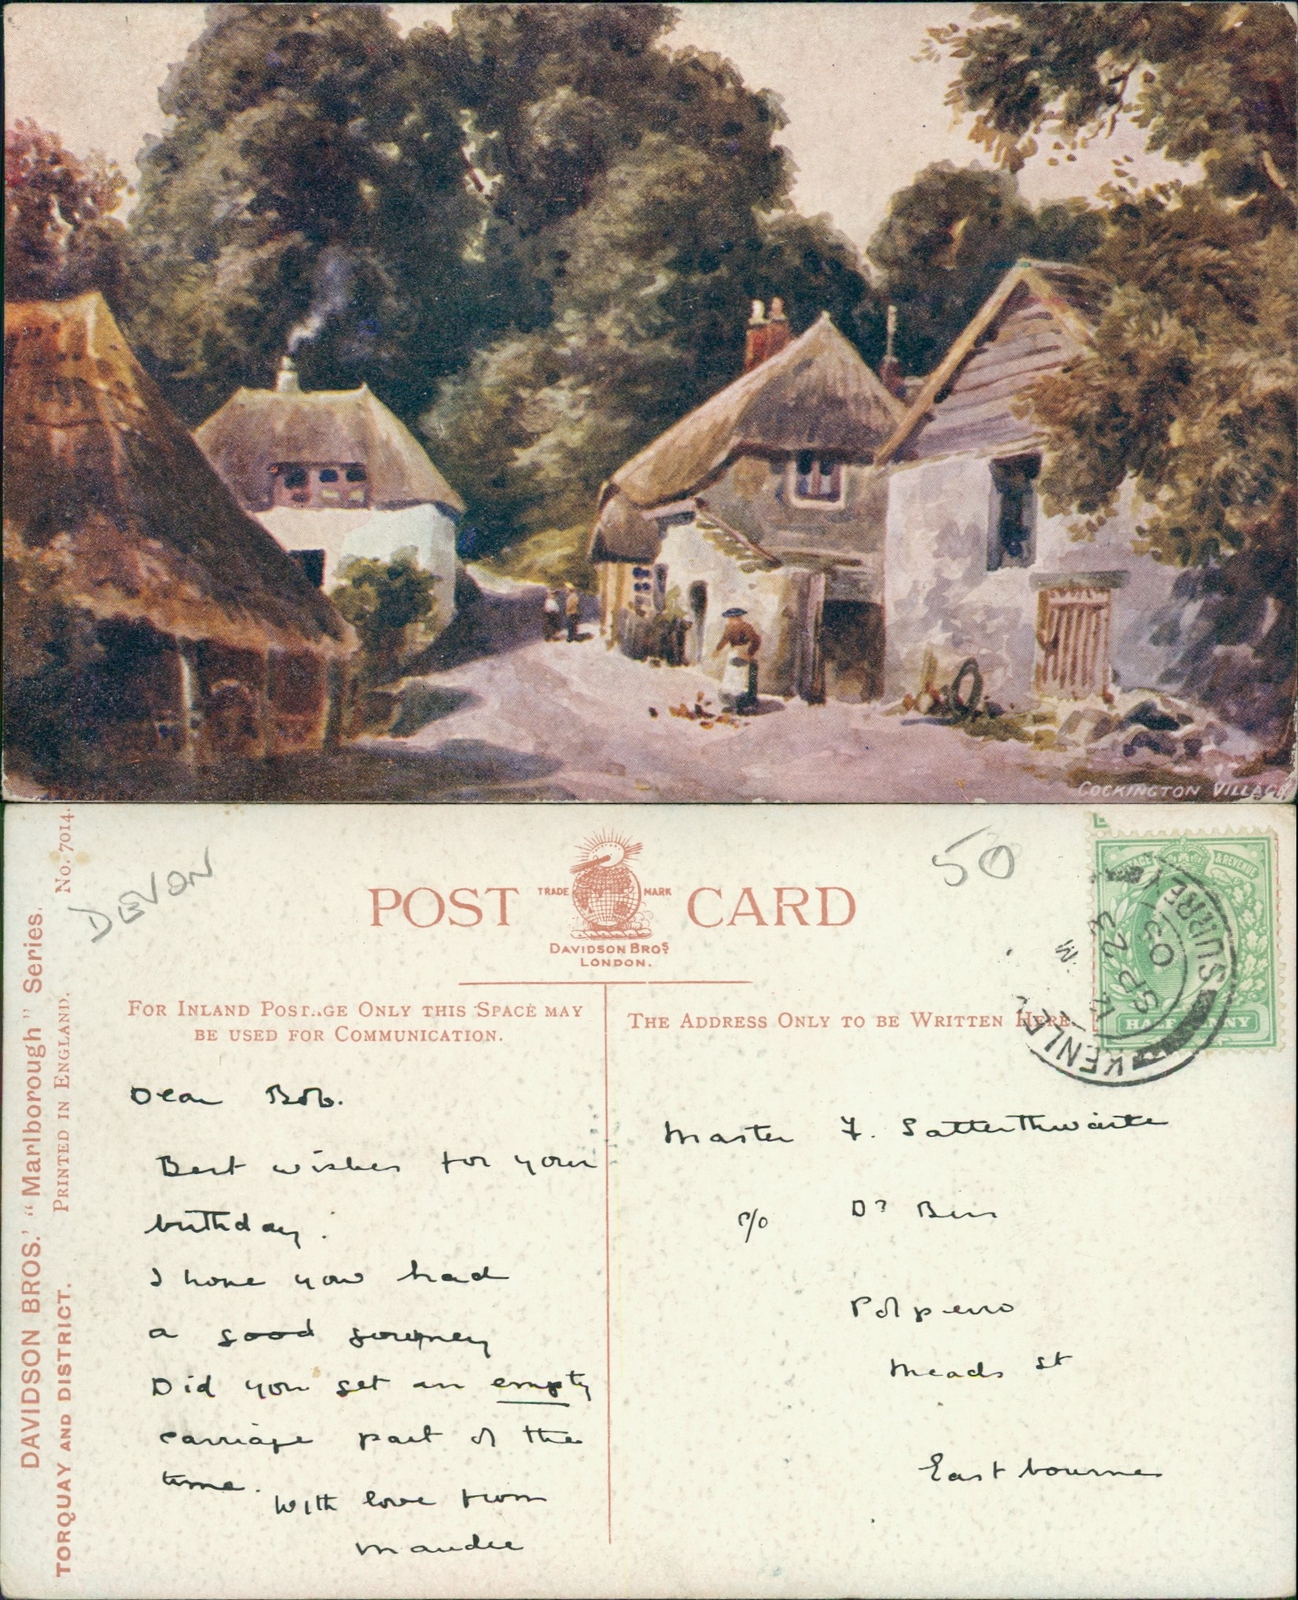 COCKINGTON VILLAGE
DAVIDSON BROS.' "Marlborough" Series.
TORQUAY AND DISTRICT. PRINTED IN ENGLAND. No. 7014.
DEVON
50
POST CARD
TRADE MARK
DAVIDSON BROS
LONDON.
FOR INLAND POSTAGE ONLY THIS SPACE MAY
BE USED FOR COMMUNICATION.
THE ADDRESS ONLY TO BE WRITTEN HERE
POSTAGE & REVENUE
HALFPENNY
KENLEY
SURREY
SP 23
03
Dear Bob.
Best wishes for your
birthday.
I hope you had
a good journey
Did you get an empty
carriage part of the
time.
With love from
Maudie
Master F. Satterthwaite
c/o Dr
Polperro
Meads St
Eastbourne